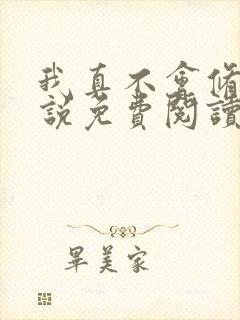 我真不會脩
說免費閱讀
畢美家